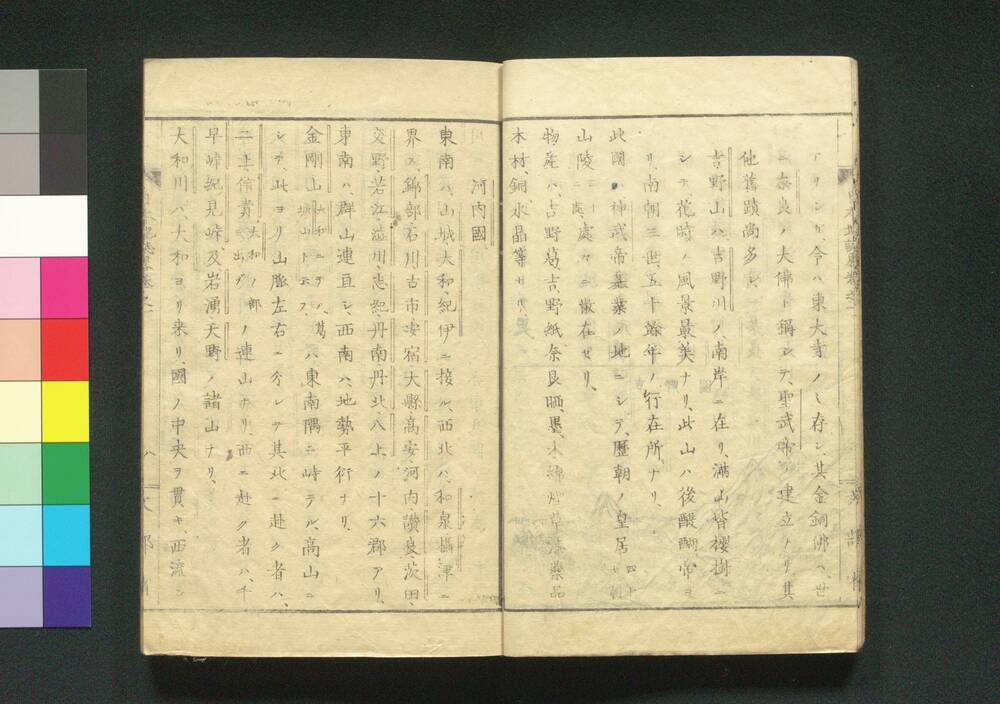 アリシガ今ハ東大寺ノミ存シ其金銅佛ハ世
奈良ノ大佛ト稱シテ、聖武帝ノ建立ナリ其
他舊蹟尚多シ
吉野山ハ吉野川ノ南岸ニ在リ、滿山皆櫻樹ニ
シテ花時ノ風景最美ナリ、此山ハ後醍醐帝ヨ
リ、南朝三世五十餘年ノ行在所ナリ、
此國ハ神武帝基業ノ地ニシテ、歷朝ノ皇居
山陵處々ニ散在セリ、
物產ハ吉野葛、吉野紙奈良晒、墨、木綿煙草漆藥品
木材、銅、水晶等ナリ、
河内國
東南ハ、山城大和、紀伊ニ接ル、西北ハ、和泉攝津ニ
界ス、錦部石川古市安宿大縣高安河内讚良茨田、
交野若江澁川志紀丹南丹北八上ノ十六郡アリ、
東南ハ、群山連亘シ、西南ハ、地勢平衍ナリ、
金剛山ハ東南隅ニ峙テル、高山ニ
シテ、此ヨリ山脈左右ニ分レテ其北ニ赴ク者ハ、
二上信貴ノ連山ナリ、西ニ赴ク者ハ、千
早峠紀見峠、及岩湧天野ノ諸山ナリ、
大和川ハ、大和ヨリ來リ、國ノ中央ヲ貫キ、西流シ
八
文部省